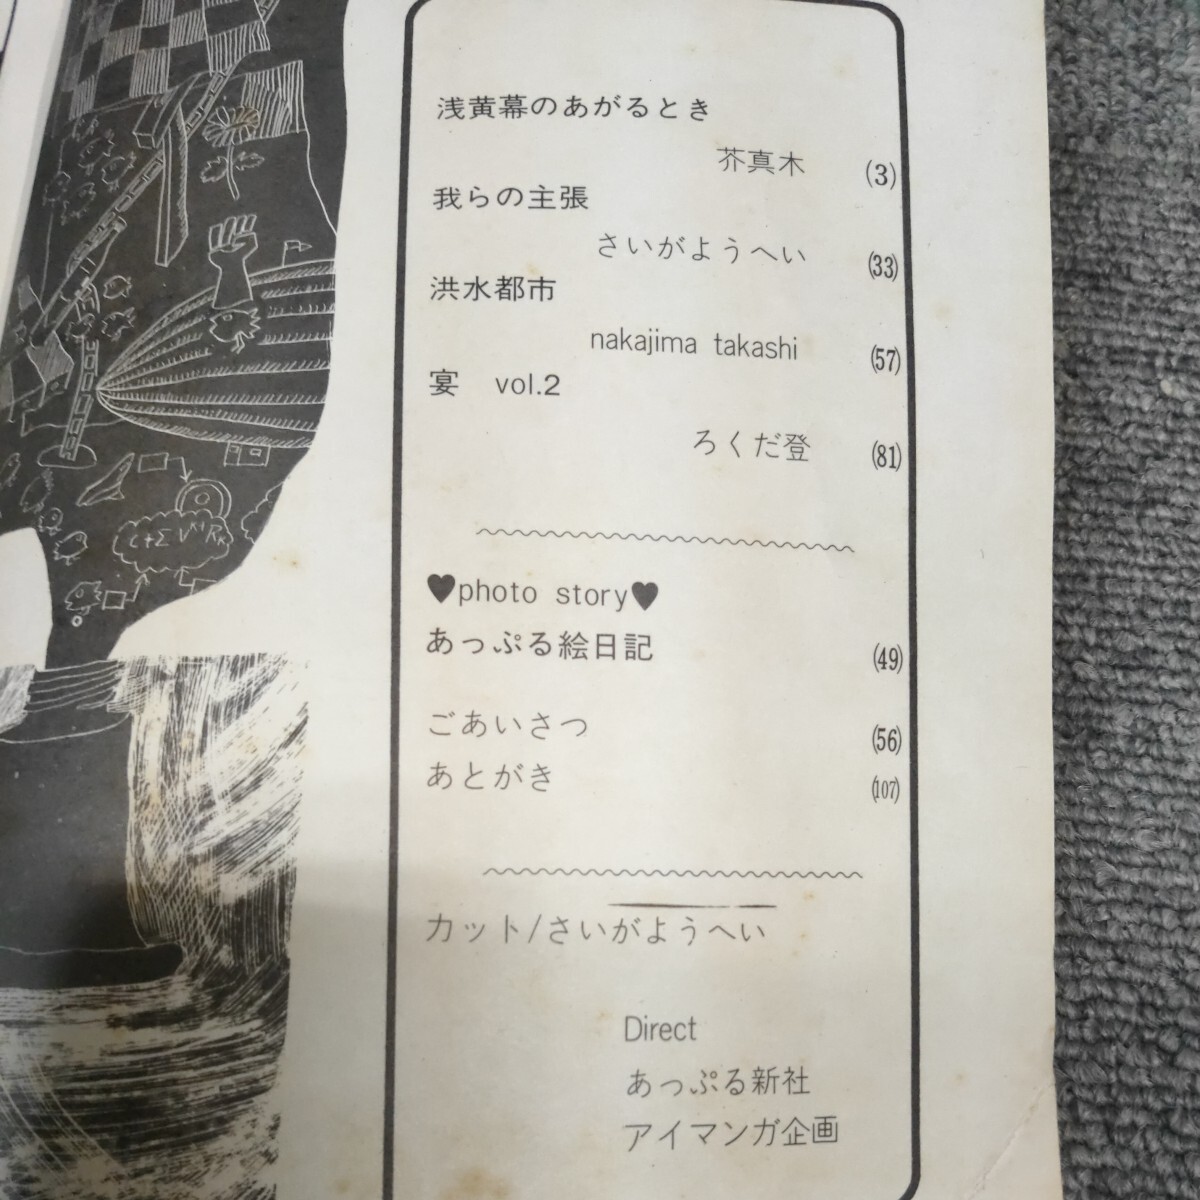 浅黄幕のあがるとき
芥真木 (3)
我らの主張
さいがようへい (33)
洪水都市
nakajima takashi (57)
宴 vol.2
ろくだ登 (81)
♥photo story♥
あっぷる絵日記 (49)
ごあいさつ (56)
あとがき (107)
カット/さいがようへい
Direct
あっぷる新社
アイマンガ企画